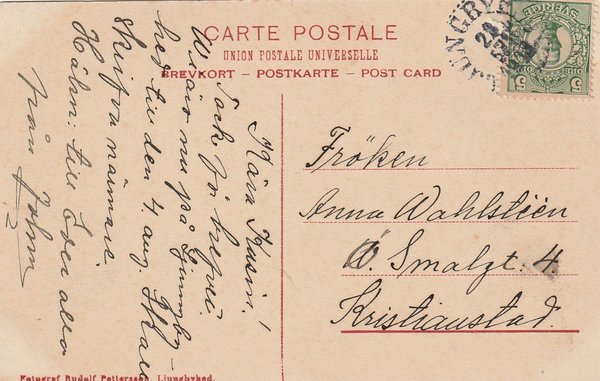 CARTE POSTALE
UNION POSTALE UNIVERSELLE
BREVKORT – POSTKARTE – POST CARD
Kära Kusin!
Tack för brefvet
Wi äro nu på Ljungby-
hed till den 4 aug. Skall
skrifva närmare.
Hälsn: till Eder alla
från John
Fröken
Anna Wahlstéen
Ö. Smalgt. 4.
Kristianstad.
Fotograf Rudolf Pettersson, Ljungbyhed.
SVERIGE
5
5